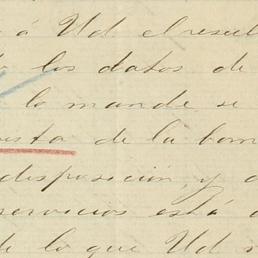 á Ud el resul
los datos de
lo mande se
esta de la bom
disposicion, y
servicios está
de lo que Ud